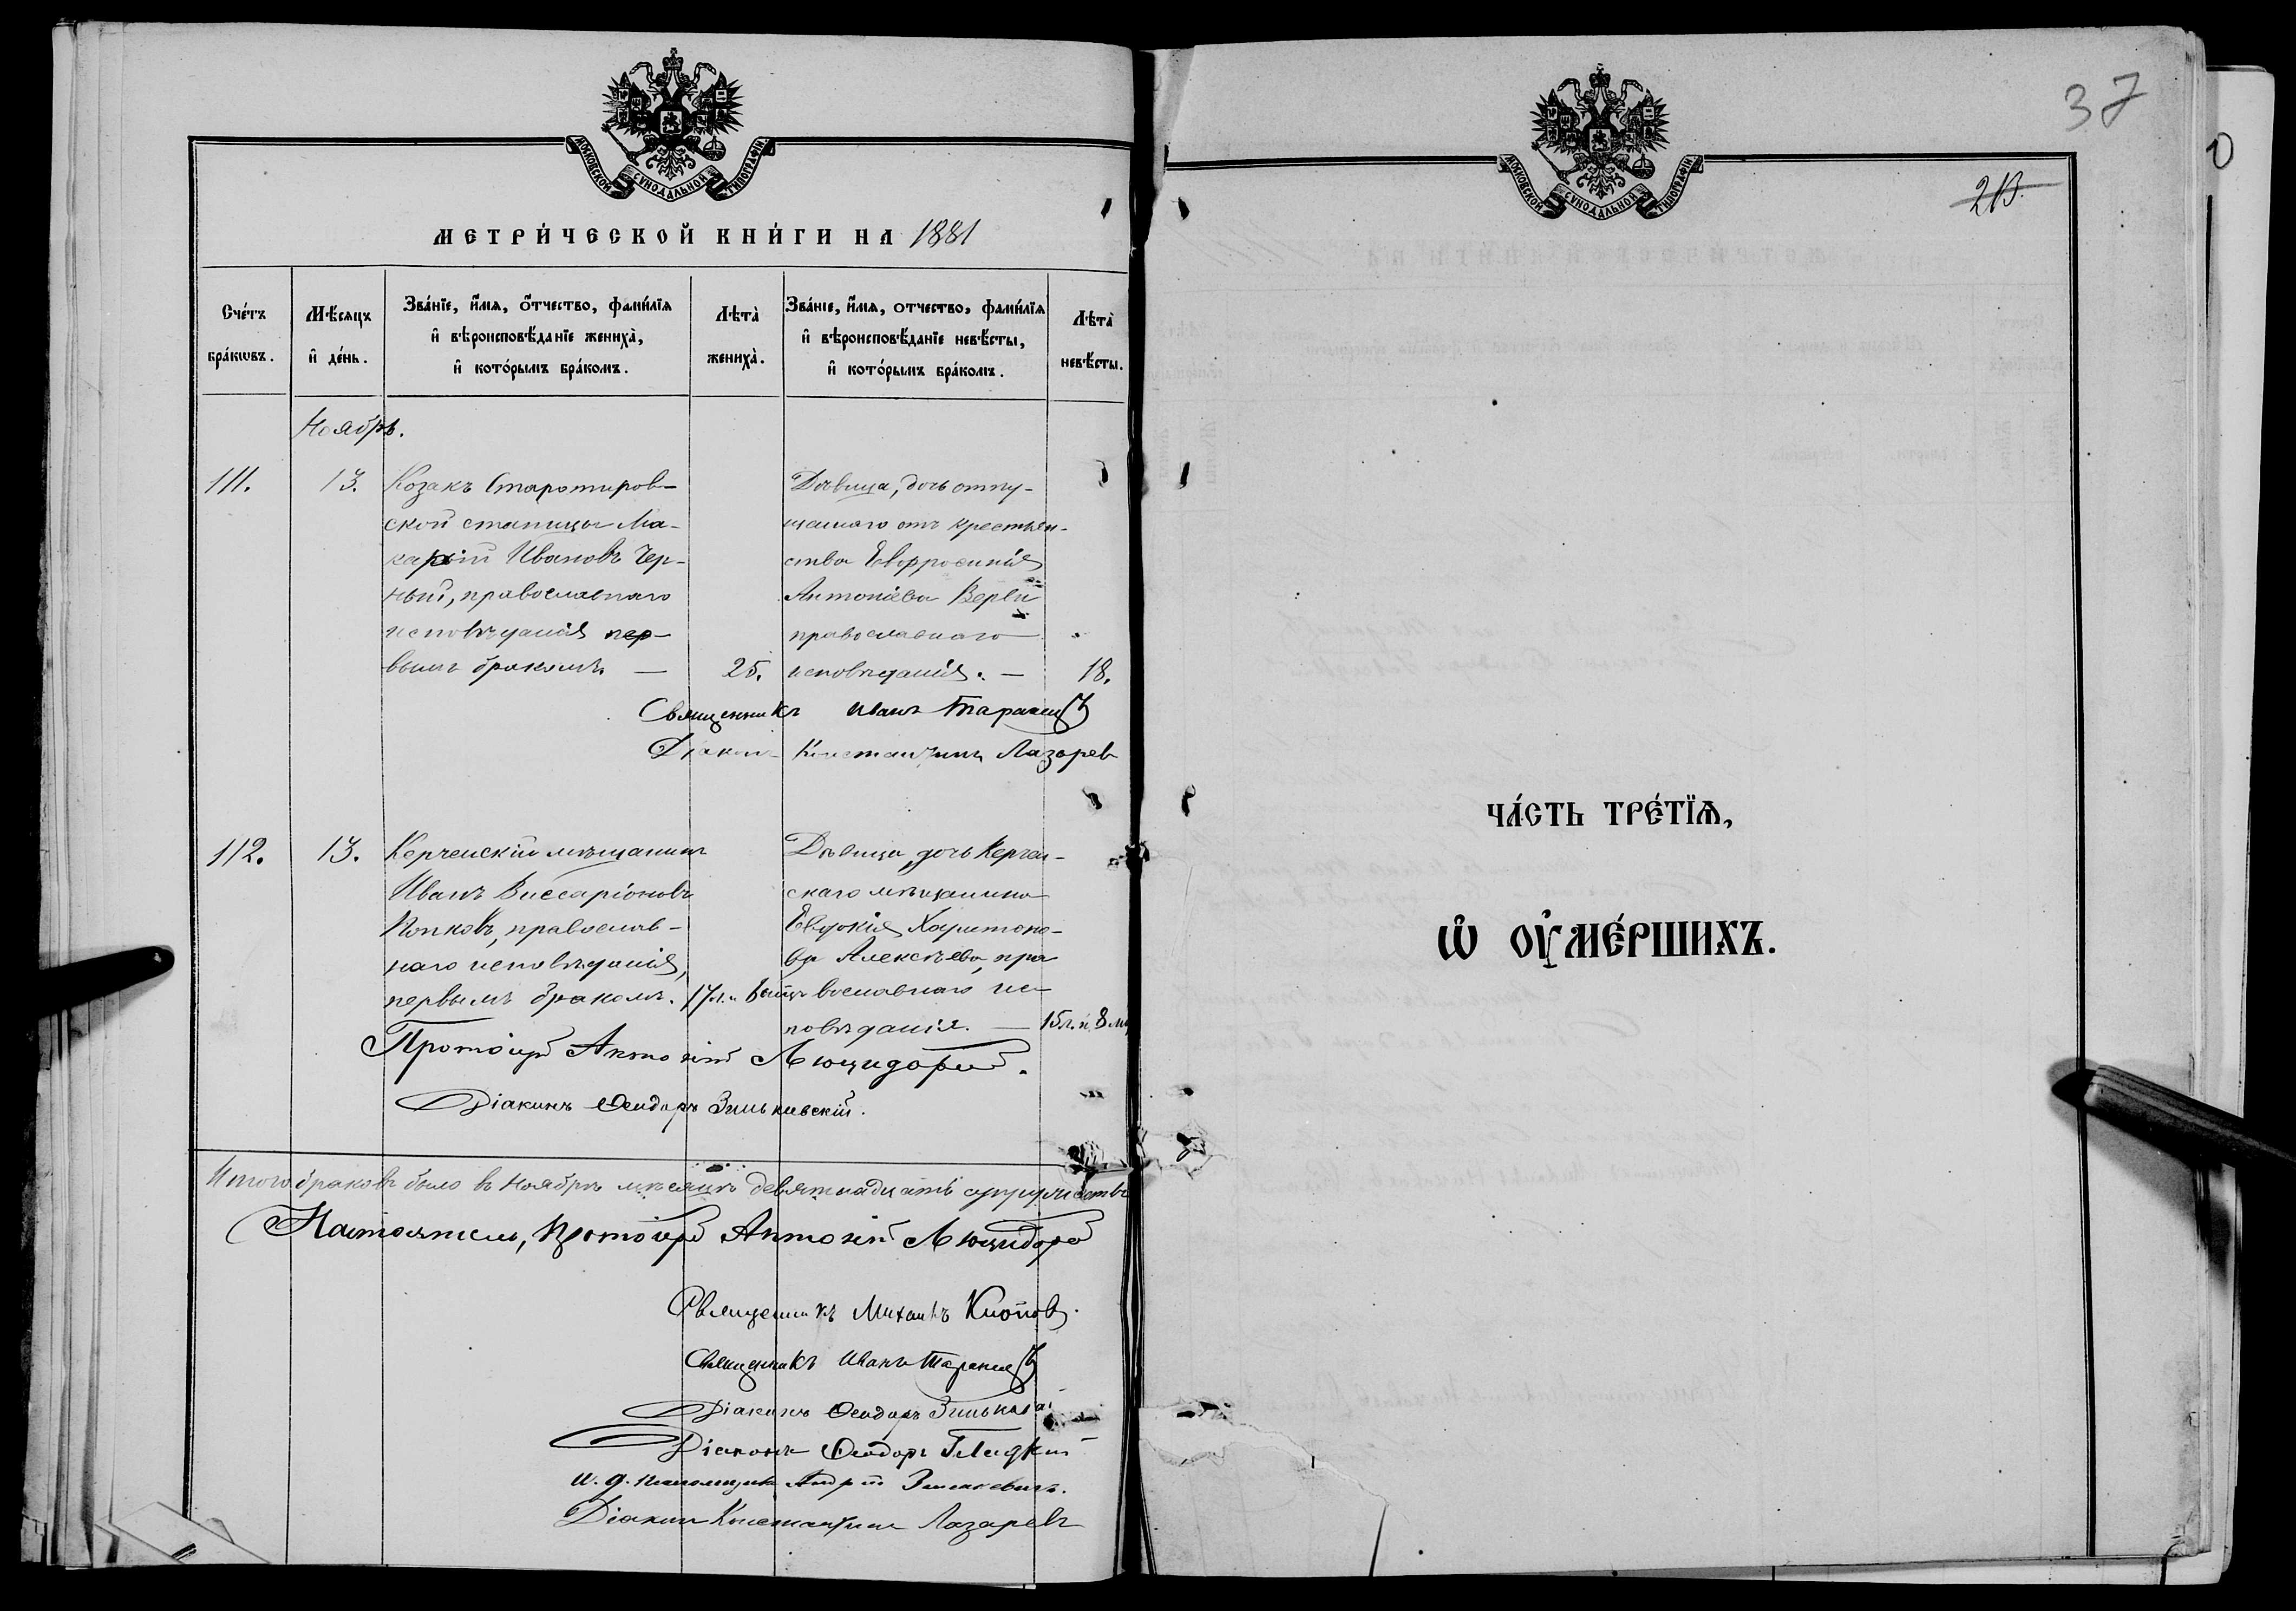 МОСКОВСКОЙ СѴНОДАЛЬНОЙ ТИПОГРАФІИ
МЕТРИ́ЧЕСКОЙ КНИ́ГИ НА 1881
Сче́тъ бра́кѡвъ.
Мѣ́сяцъ и҆ де́нь.
Зва́нїе, и҆́мя, ѻ҆́тчество, фами́лїя и҆ вѣроисповѣ́данїе жениха̀, и҆ кото́рымъ бра́комъ.
Лѣта̀ жениха̀.
Зва́нїе, и҆́мя, отчество, фами́лїя и҆ вѣроисповѣ́данїе невѣ́сты, и҆ кото́рымъ бра́комъ.
Лѣта̀ невѣ́сты.
Ноябрь.
111.
13.
Козакъ Старотиров-
ской станицы Ма-
карій Ивановъ Чер-
ный, православнаго
исповѣданія пер-
вымъ бракомъ. —
25.
Дѣвица, дочь отпу-
щеннаго отъ крестьян-
ства Евфросинія
Антоніева
православнаго
исповѣданія. —
18.
Священникъ Иванъ
Діаконъ Константинъ Лазарев
112.
13.
Керченскій мѣщанинъ
Иванъ Виссаріоновъ
Попковъ, православ-
наго исповѣданія,
первымъ бракомъ.
17 л. и
Дѣвица, дочь Керчен-
скаго мѣщанина
Евдокія Харитоно-
ва Алексѣева, пра
вославнаго ис-
повѣданія. —
15 л. и 8 м
Протоіерей Антоній
Діаконъ Ѳеодоръ Зиньковскій.
Итого браковъ было въ Ноябрѣ мѣсяцѣ девятнадцать супружествъ
Настоятель, Протоіерей Антоній
Священникъ Михаилъ
Священникъ Иванъ
Діаконъ Ѳеодоръ
Діаконъ Ѳеодоръ Гладкій
и. д. псаломщика Андрей
Діаконъ Константинъ Лазаревъ
37
МОСКОВСКОЙ СѴНОДАЛЬНОЙ ТИПОГРАФІИ
ЧА́СТЬ ТРЕ́ТЇѦ,
Ѡ҆ ОУ҆МЕ́РШИХЪ.